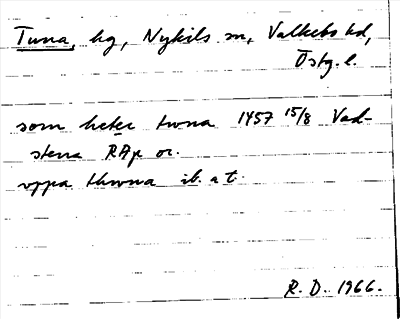 Tuna, hg, Nykils sn, Valkebo hd,
Östg. l.
som heter twna 1457 15/8 Vad-
stena RAp or.
vppa thwna ib. a t.
R. D. 1966.